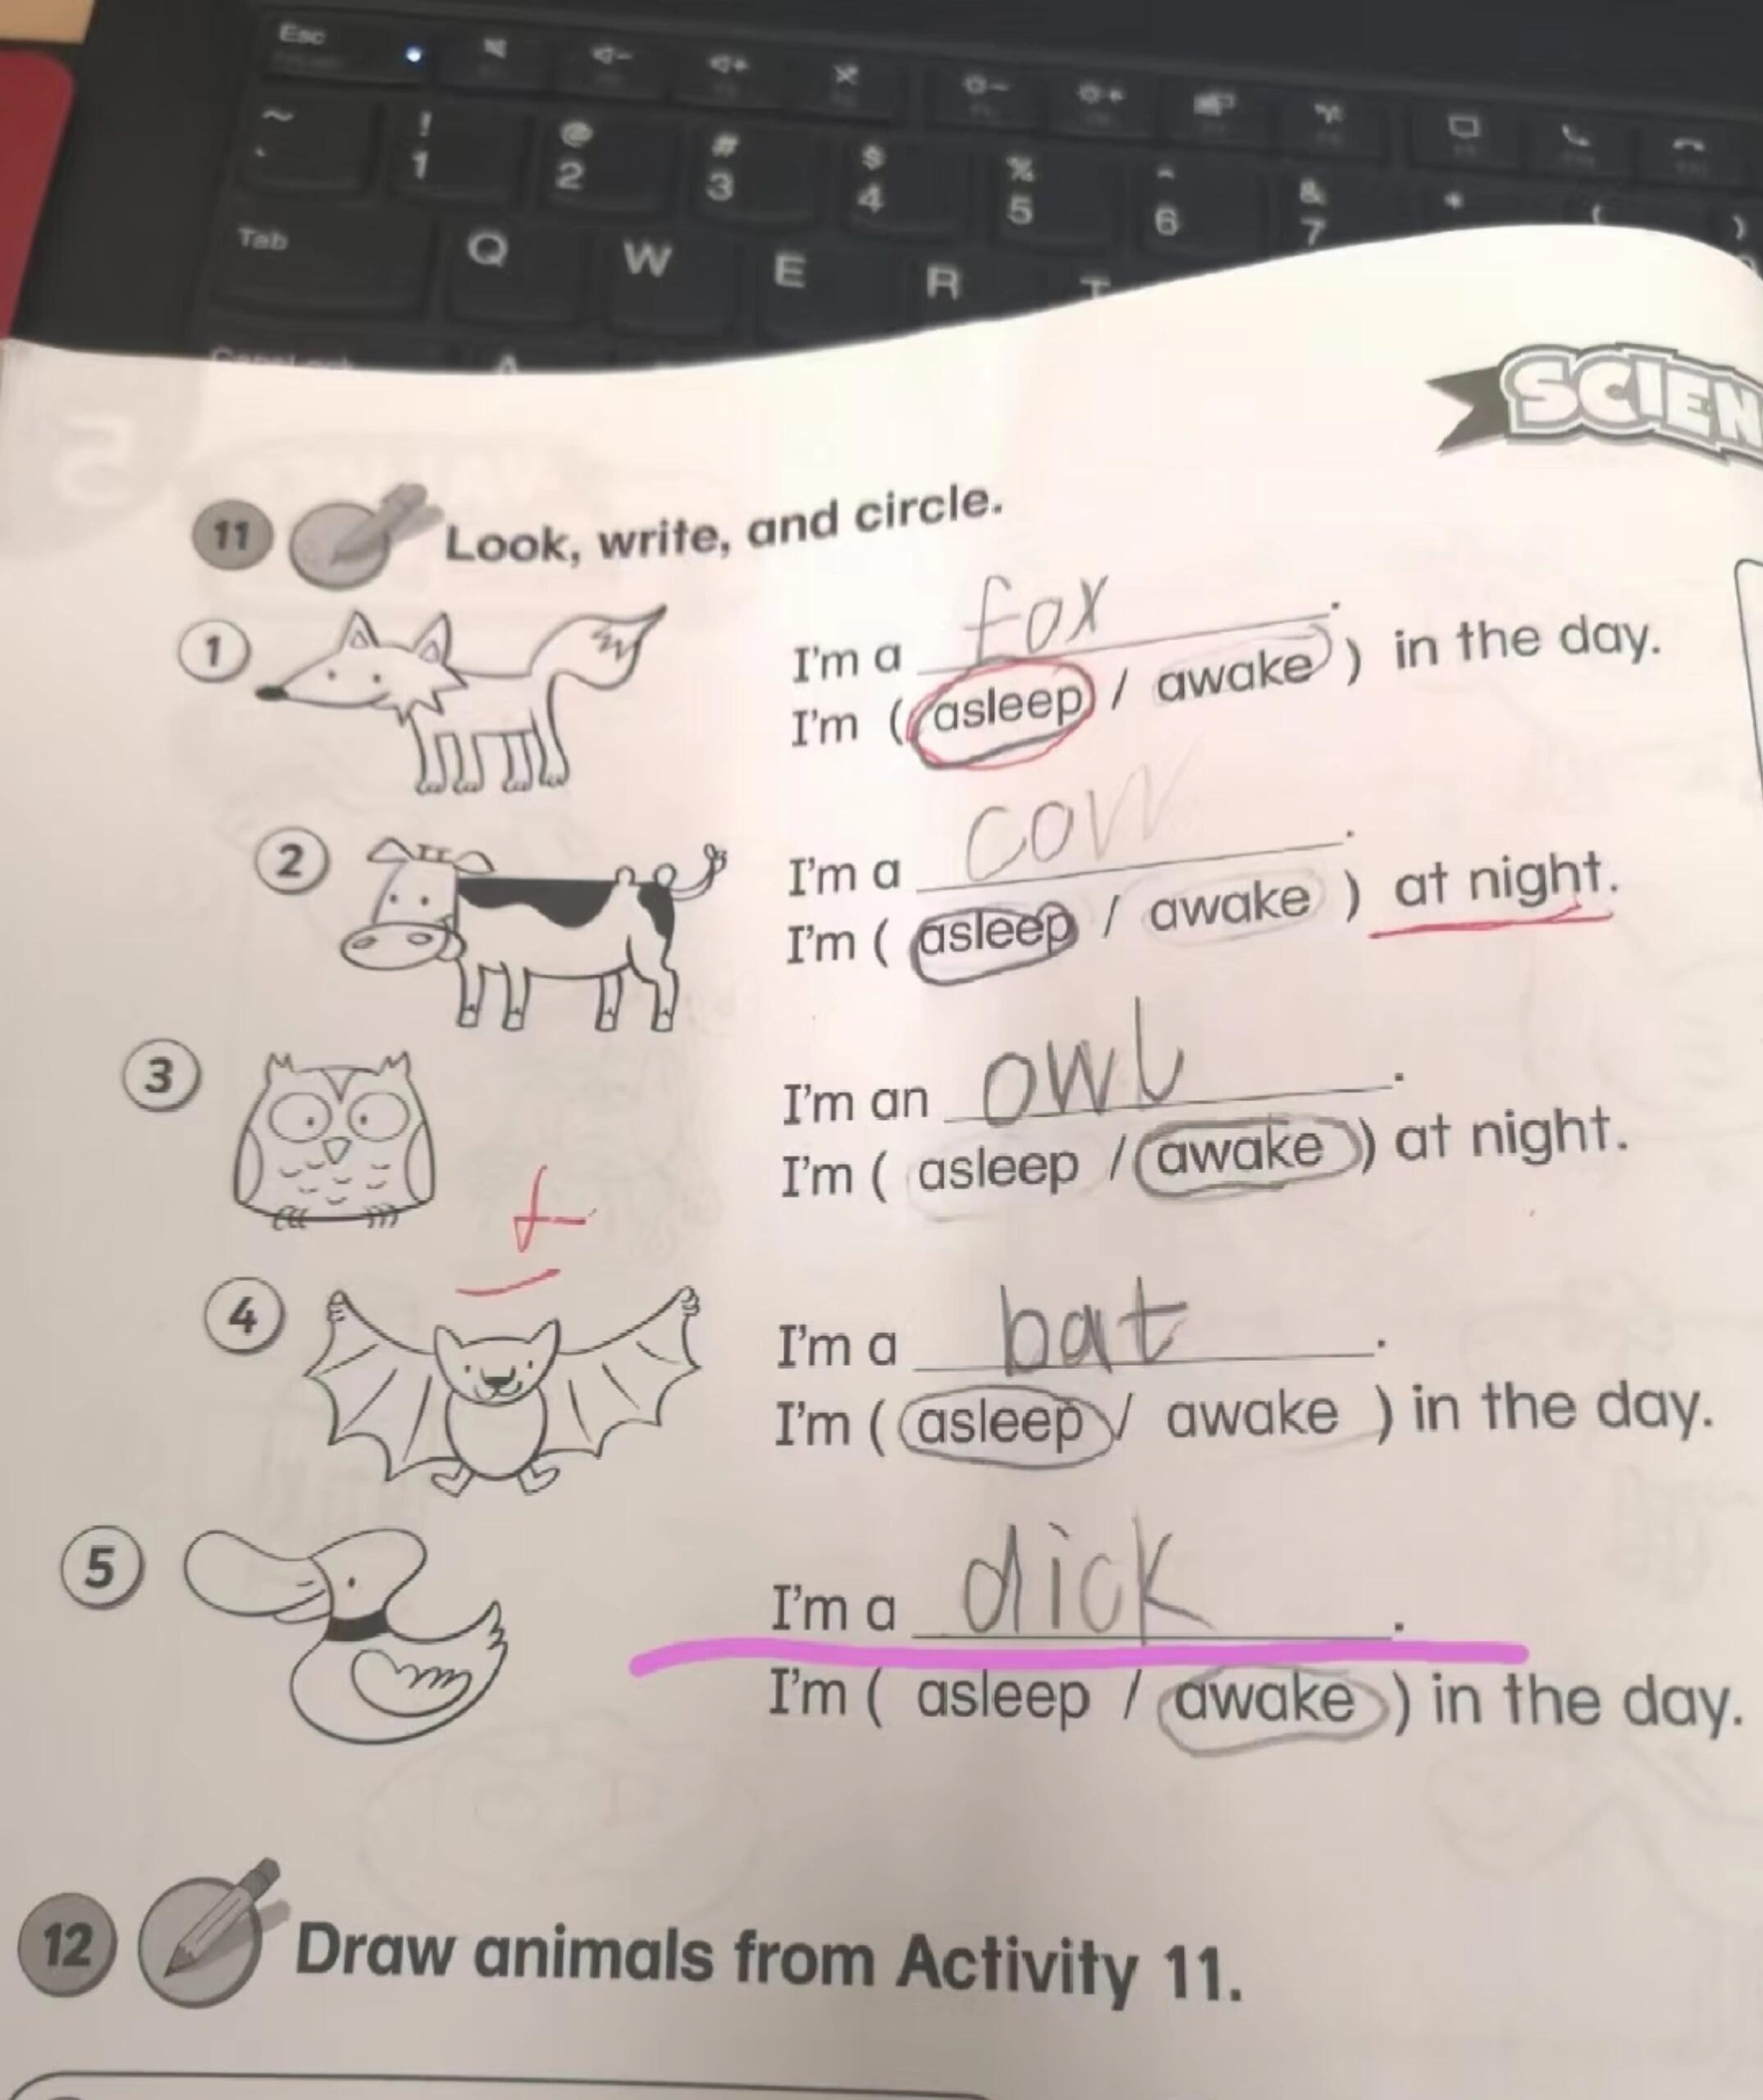 Esc
~ ! @ # $ % ^ & * ( )
` 1 2 3 4 5 6 7
Tab Q W E R T
A
SCIEN
5
11 Look, write, and circle.
1 I'm a fox.
I'm ( asleep / awake ) in the day.
2 I'm a cow.
I'm ( asleep / awake ) at night.
3 I'm an owl.
I'm ( asleep / awake ) at night.
4 I'm a bat.
I'm ( asleep / awake ) in the day.
5 I'm a dick.
I'm ( asleep / awake ) in the day.
12 Draw animals from Activity 11.